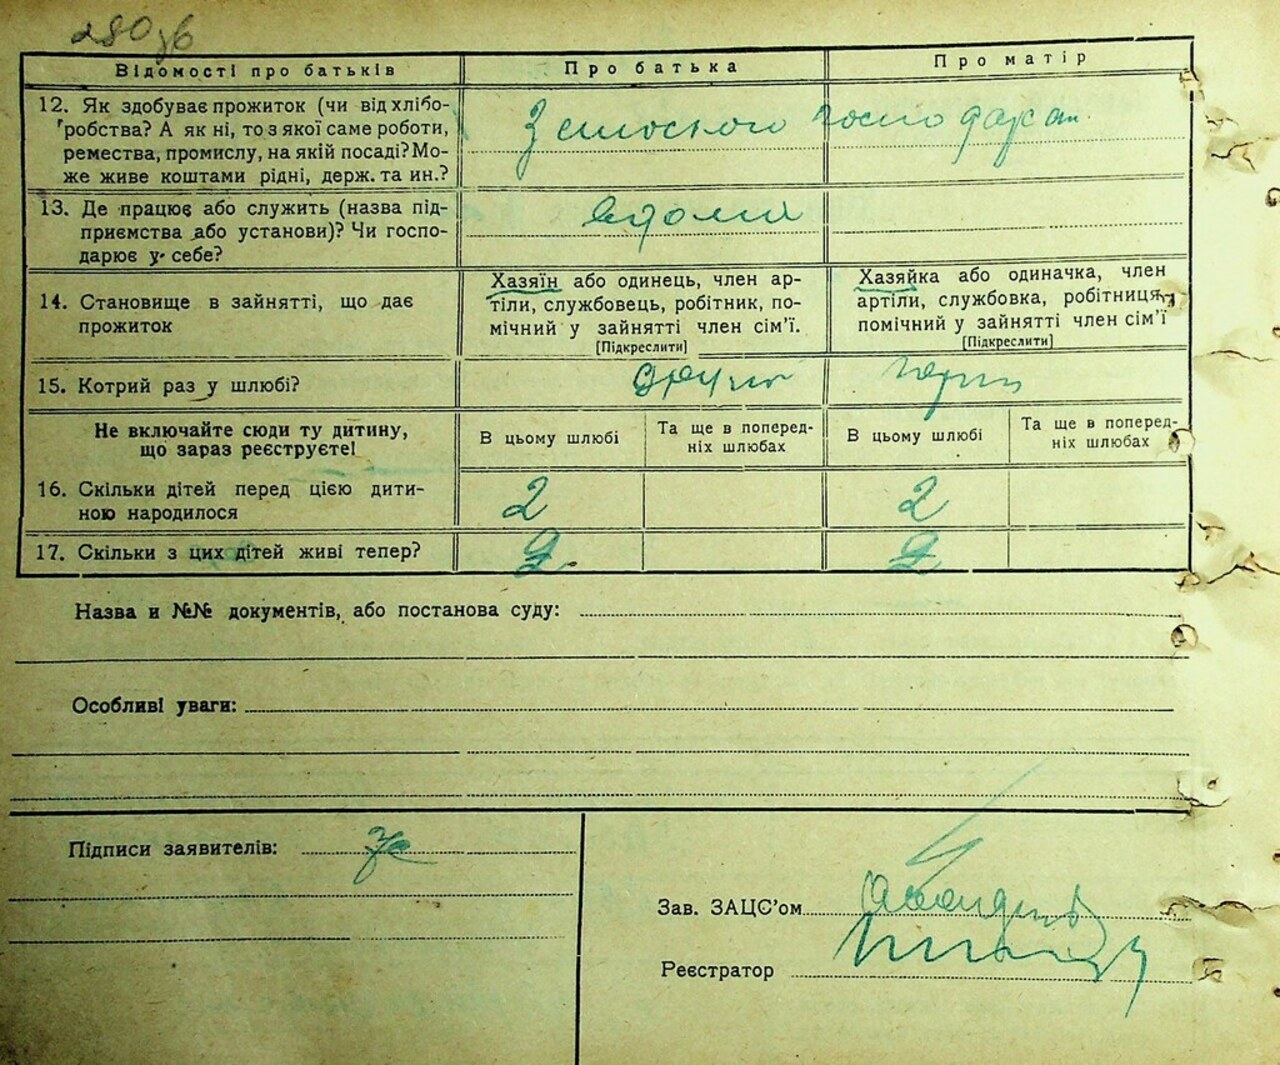 280зв
Відомості про батьків
Про батька
Про матір
12. Як здобуває прожиток (чи від хлібо-
робства? А як ні, то з якої саме роботи,
ремества, промислу, на якій посаді? Мо-
же живе коштами рідні, держ. та ин.?
З сільського господарст.
13. Де працює або служить (назва під-
приємства або установи)? Чи госпо-
дарює у себе?
вдома
14. Становище в зайнятті, що дає
прожиток
Хазяїн або одинець, член ар-
тілі, службовець, робітник, по-
мічний у зайнятті член сім'ї.
[Підкреслити]
Хазяйка або одиначка, член
артіли, службовка, робітниця,
помічний у зайнятті член сім'ї
[Підкреслити]
15. Котрий раз у шлюбі?
другий
перший
Не включайте сюди ту дитину,
що зараз реєструєте!
В цьому шлюбі
Та ще в поперед-
ніх шлюбах
В цьому шлюбі
Та ще в поперед-
ніх шлюбах
16. Скільки дітей перед цією дити-
ною народилося
2
2
17. Скільки з цих дітей живі тепер?
2
2
Назва и №№ документів, або постанова суду:
Особливі уваги:
Підписи заявителів:
Зав. ЗАЦС'ом
Реєстратор